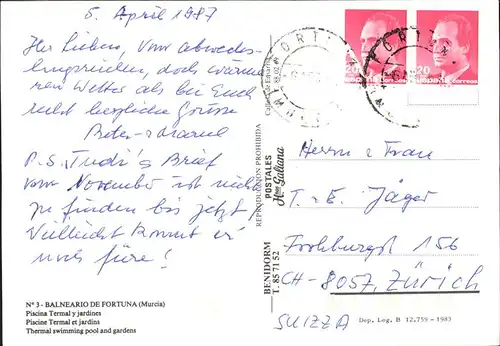 5. April 1987
Ihr Lieben, vom abwechs-
lungsreichen, doch wärme-
ren Wetter als bei Euch
recht herzliche Grüsse
Peter +
P.S. Trudi's Brief
vom November ist nicht
zu finden bis jetzt,
Vielleicht kommt er
noch füre!
Nº 3 - BALNEARIO DE FORTUNA (Murcia)
Piscina Termal y jardines
Piscine Termal et jardins
Thermal swimming pool and gardens
REPRODUCCION PROHIBIDA
POSTALES
Hnos Galiana
BENIDORM
T. 85 71 52
20
20
España correos
Herrn + Frau
T. + E. Jäger
Frohburgst 156
CH-8057, Zürich
SUIZZA
Dep. Leg. B 12.759 - 1983